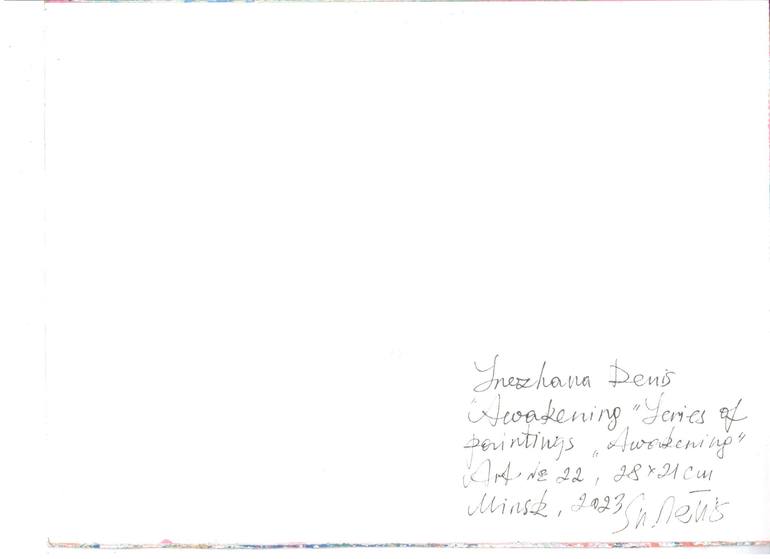 Snezhana Denis
"Awakening" Series of
paintings „Awakening"
Art № 22, 28×21 cm
Minsk, 2023 Sn. Denis